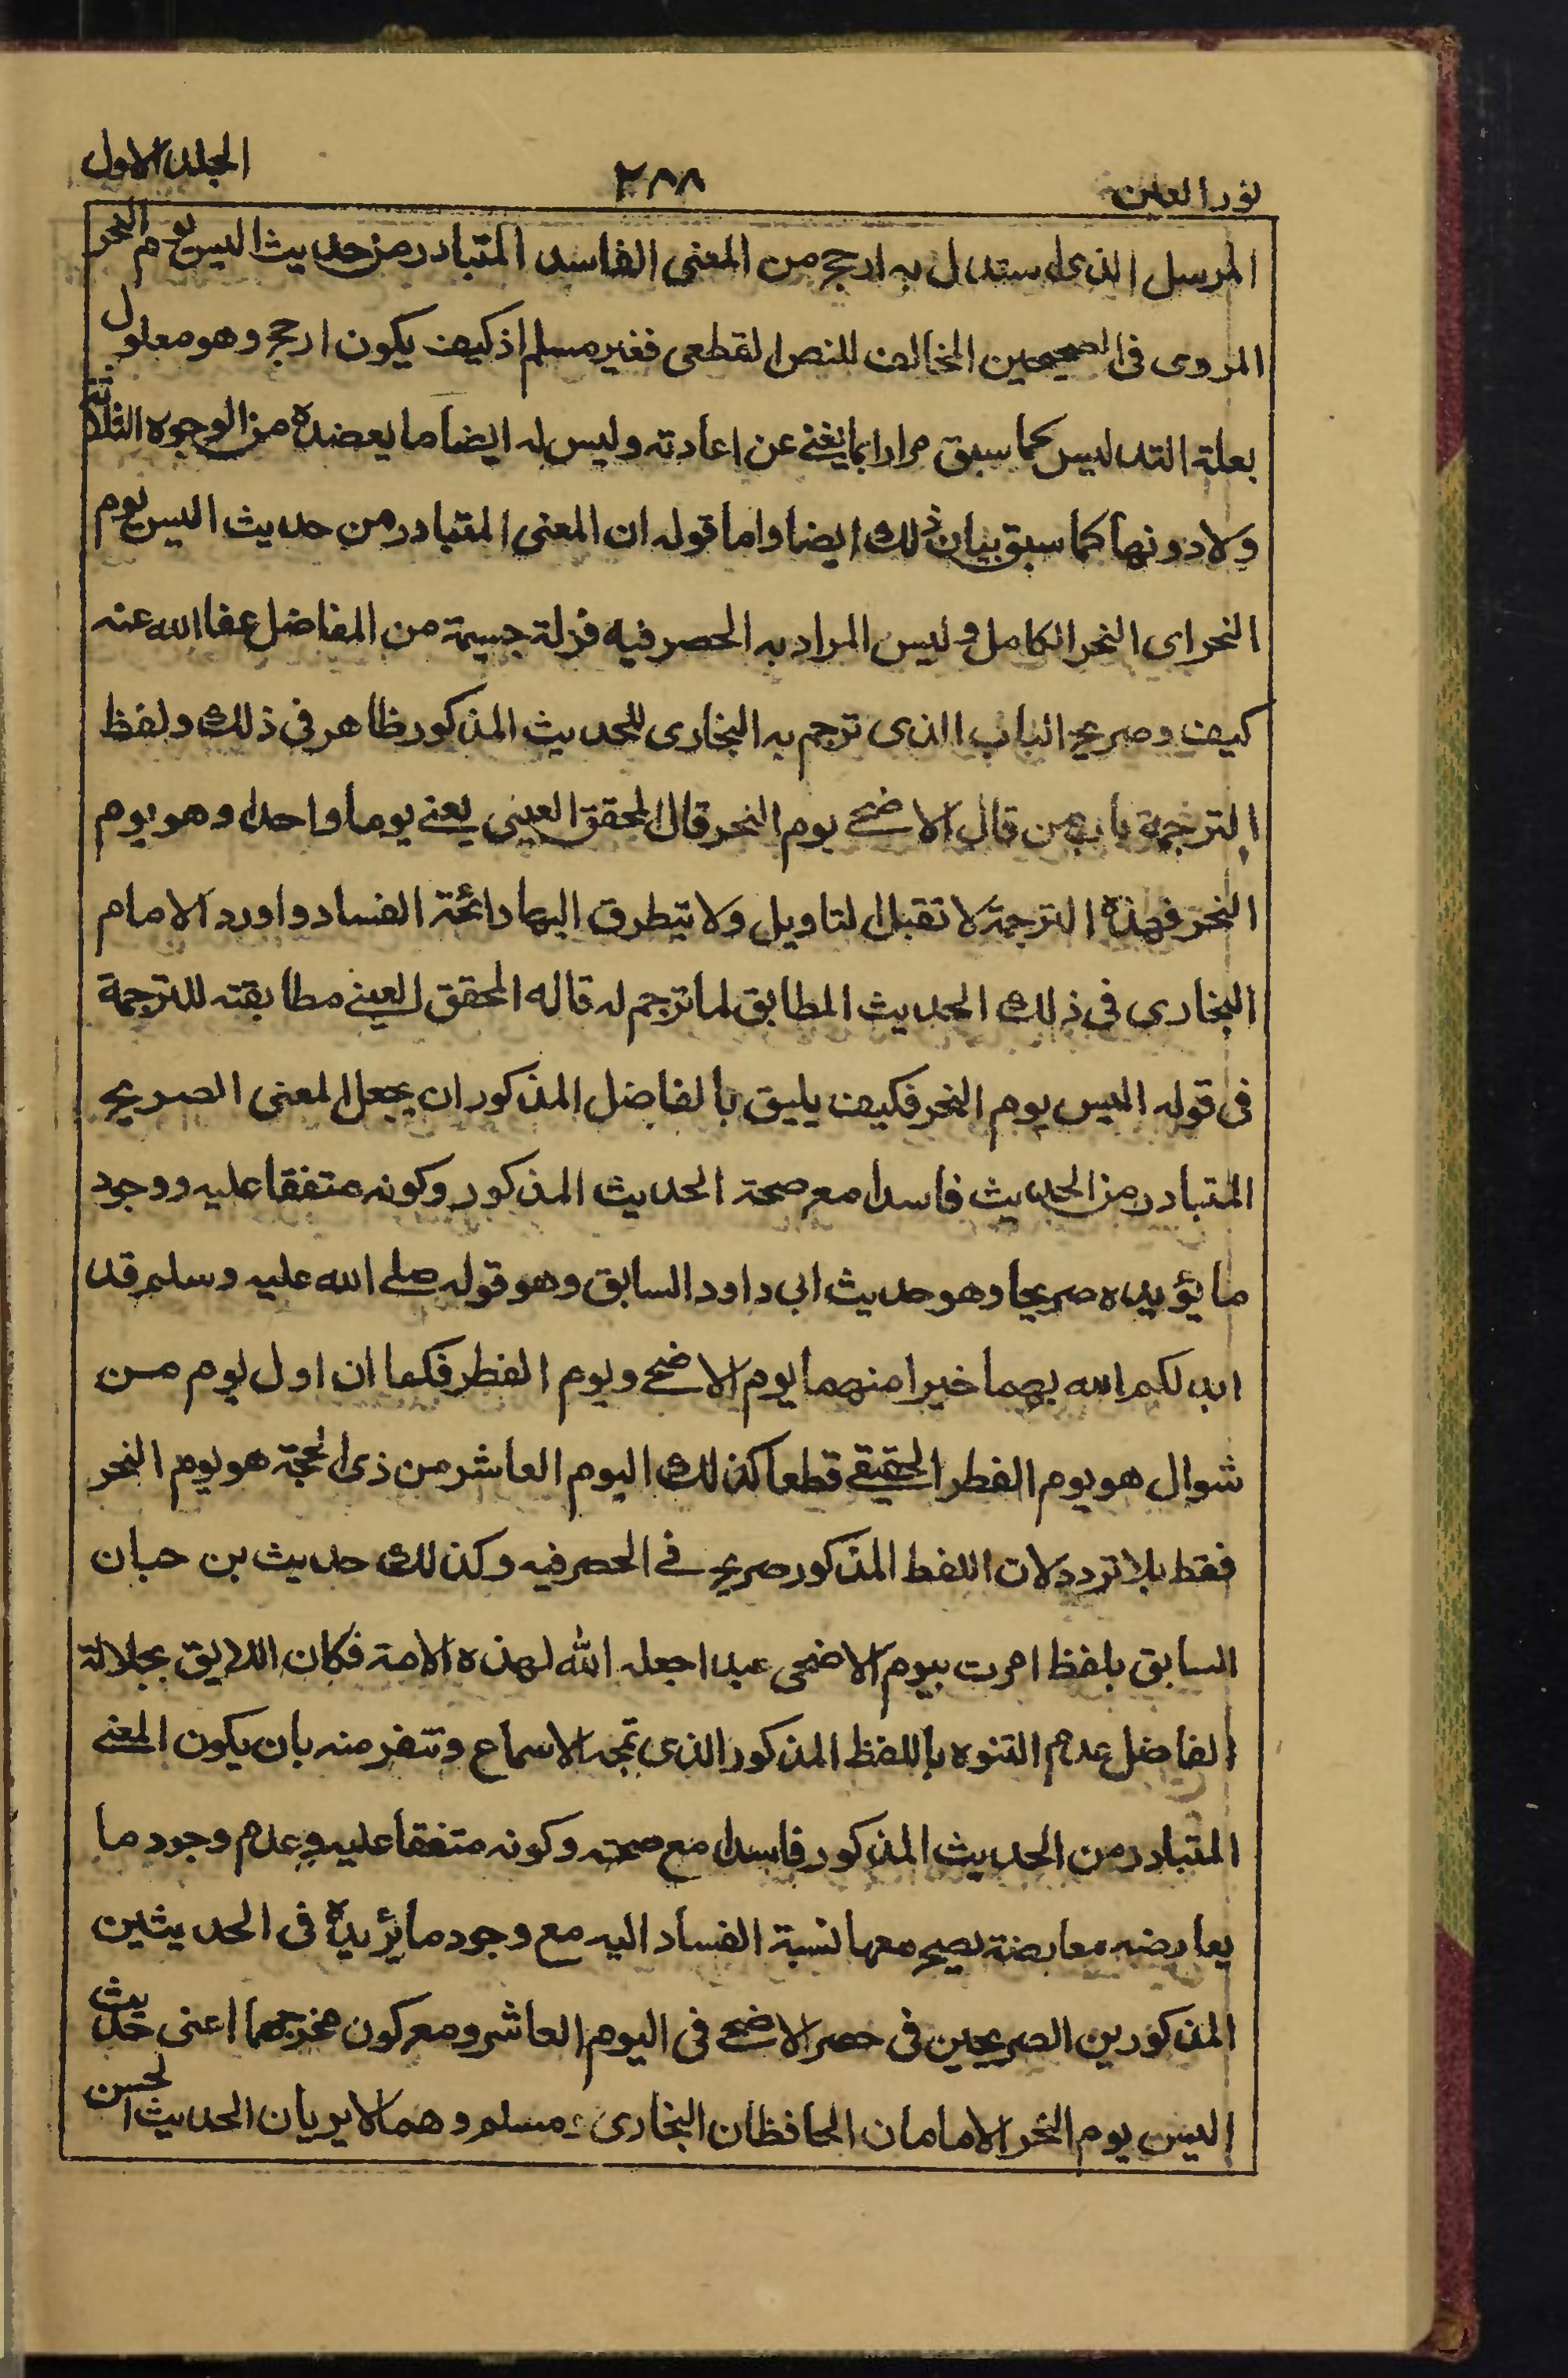 نور العين ٢٨٨ الجلد الاول
المرسل الذى استدل به ارجح من المعنى الفاسد المتبادر من حديث اليس يوم النحر
المروى فى الصحيحين المخالف للنص القطعى فغير مسلم اذ كيف يكون ارجح وهو معلول
بعلة التدليس كما سبق مرارا بما يغنى عن اعادته وليس له ايضا ما يعضده من الوجوه الثلاثة
ولا دونها كما سبق بيان ذلك ايضا واما قوله ان المعنى المتبادر من حديث اليس يوم
النحر اى النحر الكامل وليس المراد به الحصر فيه فزلة جسيمة من الفاضل عفا الله عنه
كيف وصريح الباب الذى ترجم به البخارى للحديث المذكور ظاهر فى ذلك ولفظ
الترجمة باب من قال الاضحى يوم النحر قال المحقق العينى يعنى يوما واحدا وهو يوم
النحر فهذه الترجمة لا تقبل التاويل ولا يتطرق اليها رائحة الفساد واورد الامام
البخارى فى ذلك الحديث المطابق لما ترجم له قاله المحقق العينى مطابقته للترجمة
فى قوله اليس يوم النحر فكيف يليق بالفاضل المذكور ان يجعل المعنى الصريح
المتبادر من الحديث فاسدا مع صحة الحديث المذكور وكونه متفقا عليه ووجود
ما يؤيده صريحا وهو حديث ابى داود السابق وهو قوله صلى الله عليه وسلم قد
ابدلكم الله بهما خيرا منهما يوم الاضحى ويوم الفطر فكما ان اول يوم من
شوال هو يوم الفطر الحقيقى قطعا كذلك اليوم العاشر من ذى الحجة هو يوم النحر
فقط بلا تردد لان اللفظ المذكور صريح فى الحصر فيه وكذلك حديث بن حبان
السابق بلفظ امرت بيوم الاضحى عيدا جعله الله لهذه الامة فكان اللايق بجلالة
الفاضل عدم التنوه باللفظ المذكور الذى تمجه الاسماع وتنفر منه بان يكون المعنى
المتبادر من الحديث المذكور فاسدا مع صحته وكونه متفقا عليه وعدم وجود ما
يعارضه معارضة يصح معها نسبة الفساد اليه مع وجود ما يؤيده فى الحديثين
المذكورين الصريحين فى حصر الاضحى فى اليوم العاشر ومع كون مخرجهما اعنى حديث
اليس يوم النحر الامامان الحافظان البخارى ومسلم وهما لا يريان الحديث الحسن